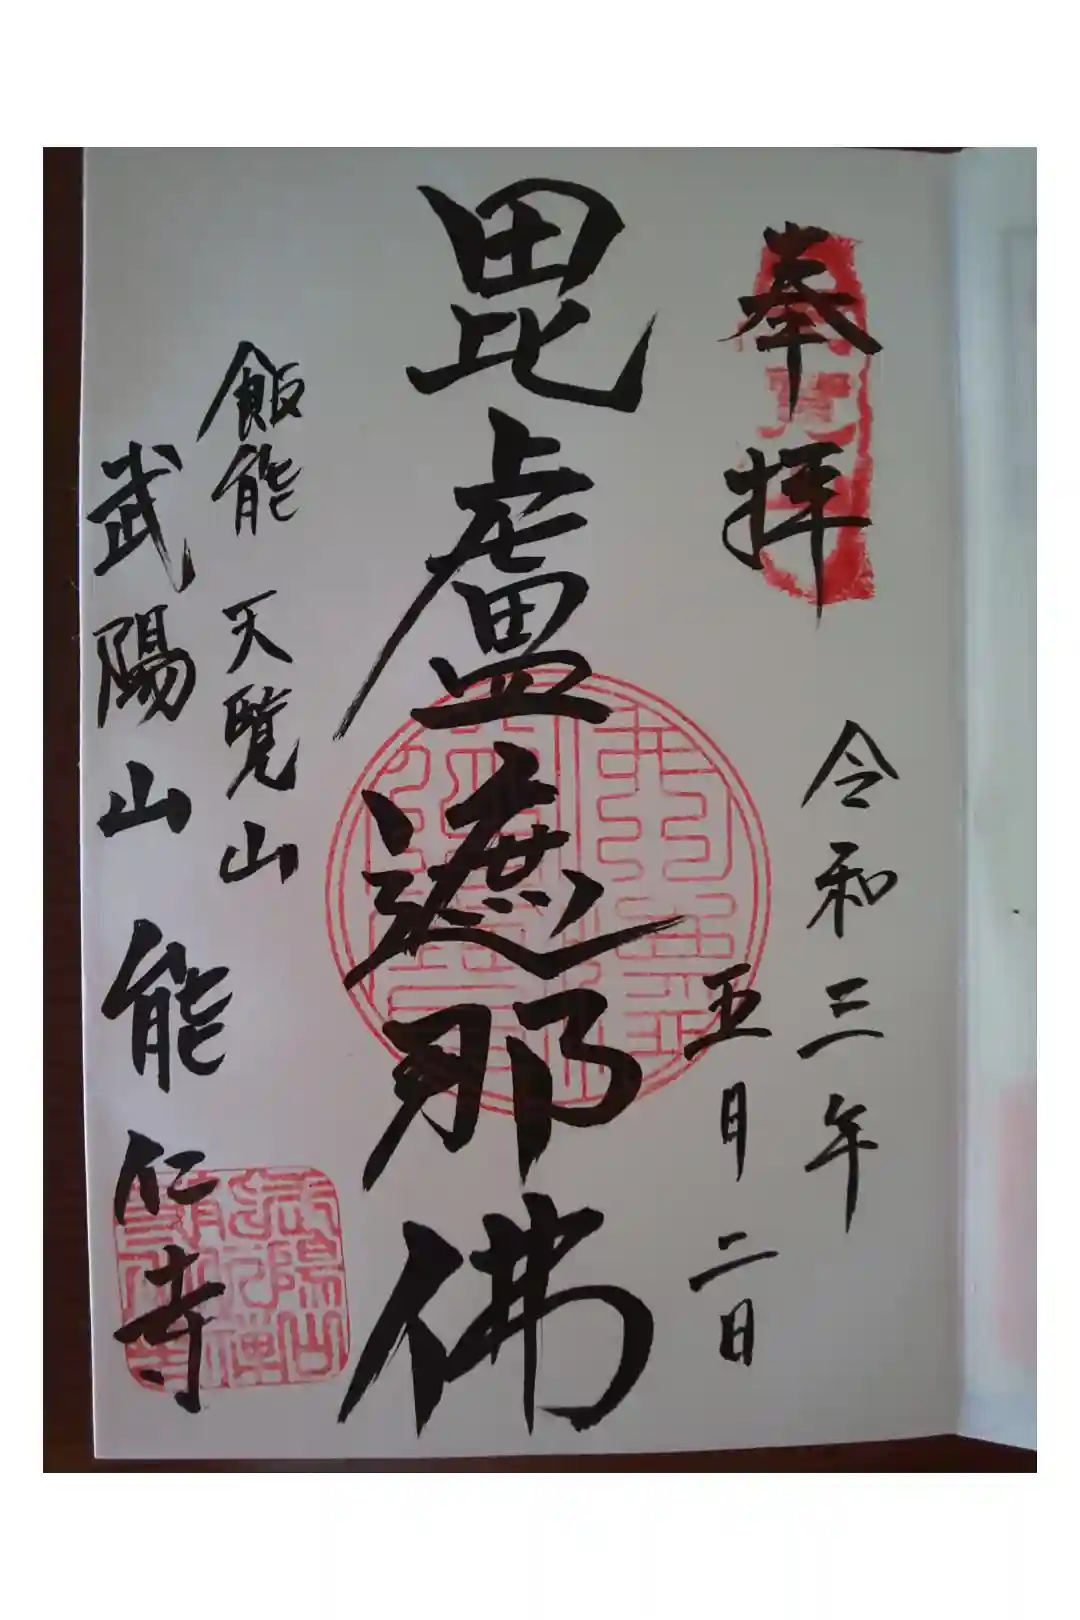 奉拝
令和三年
五月二日
毘盧遮那佛
飯能 天覧山
武陽山能仁寺